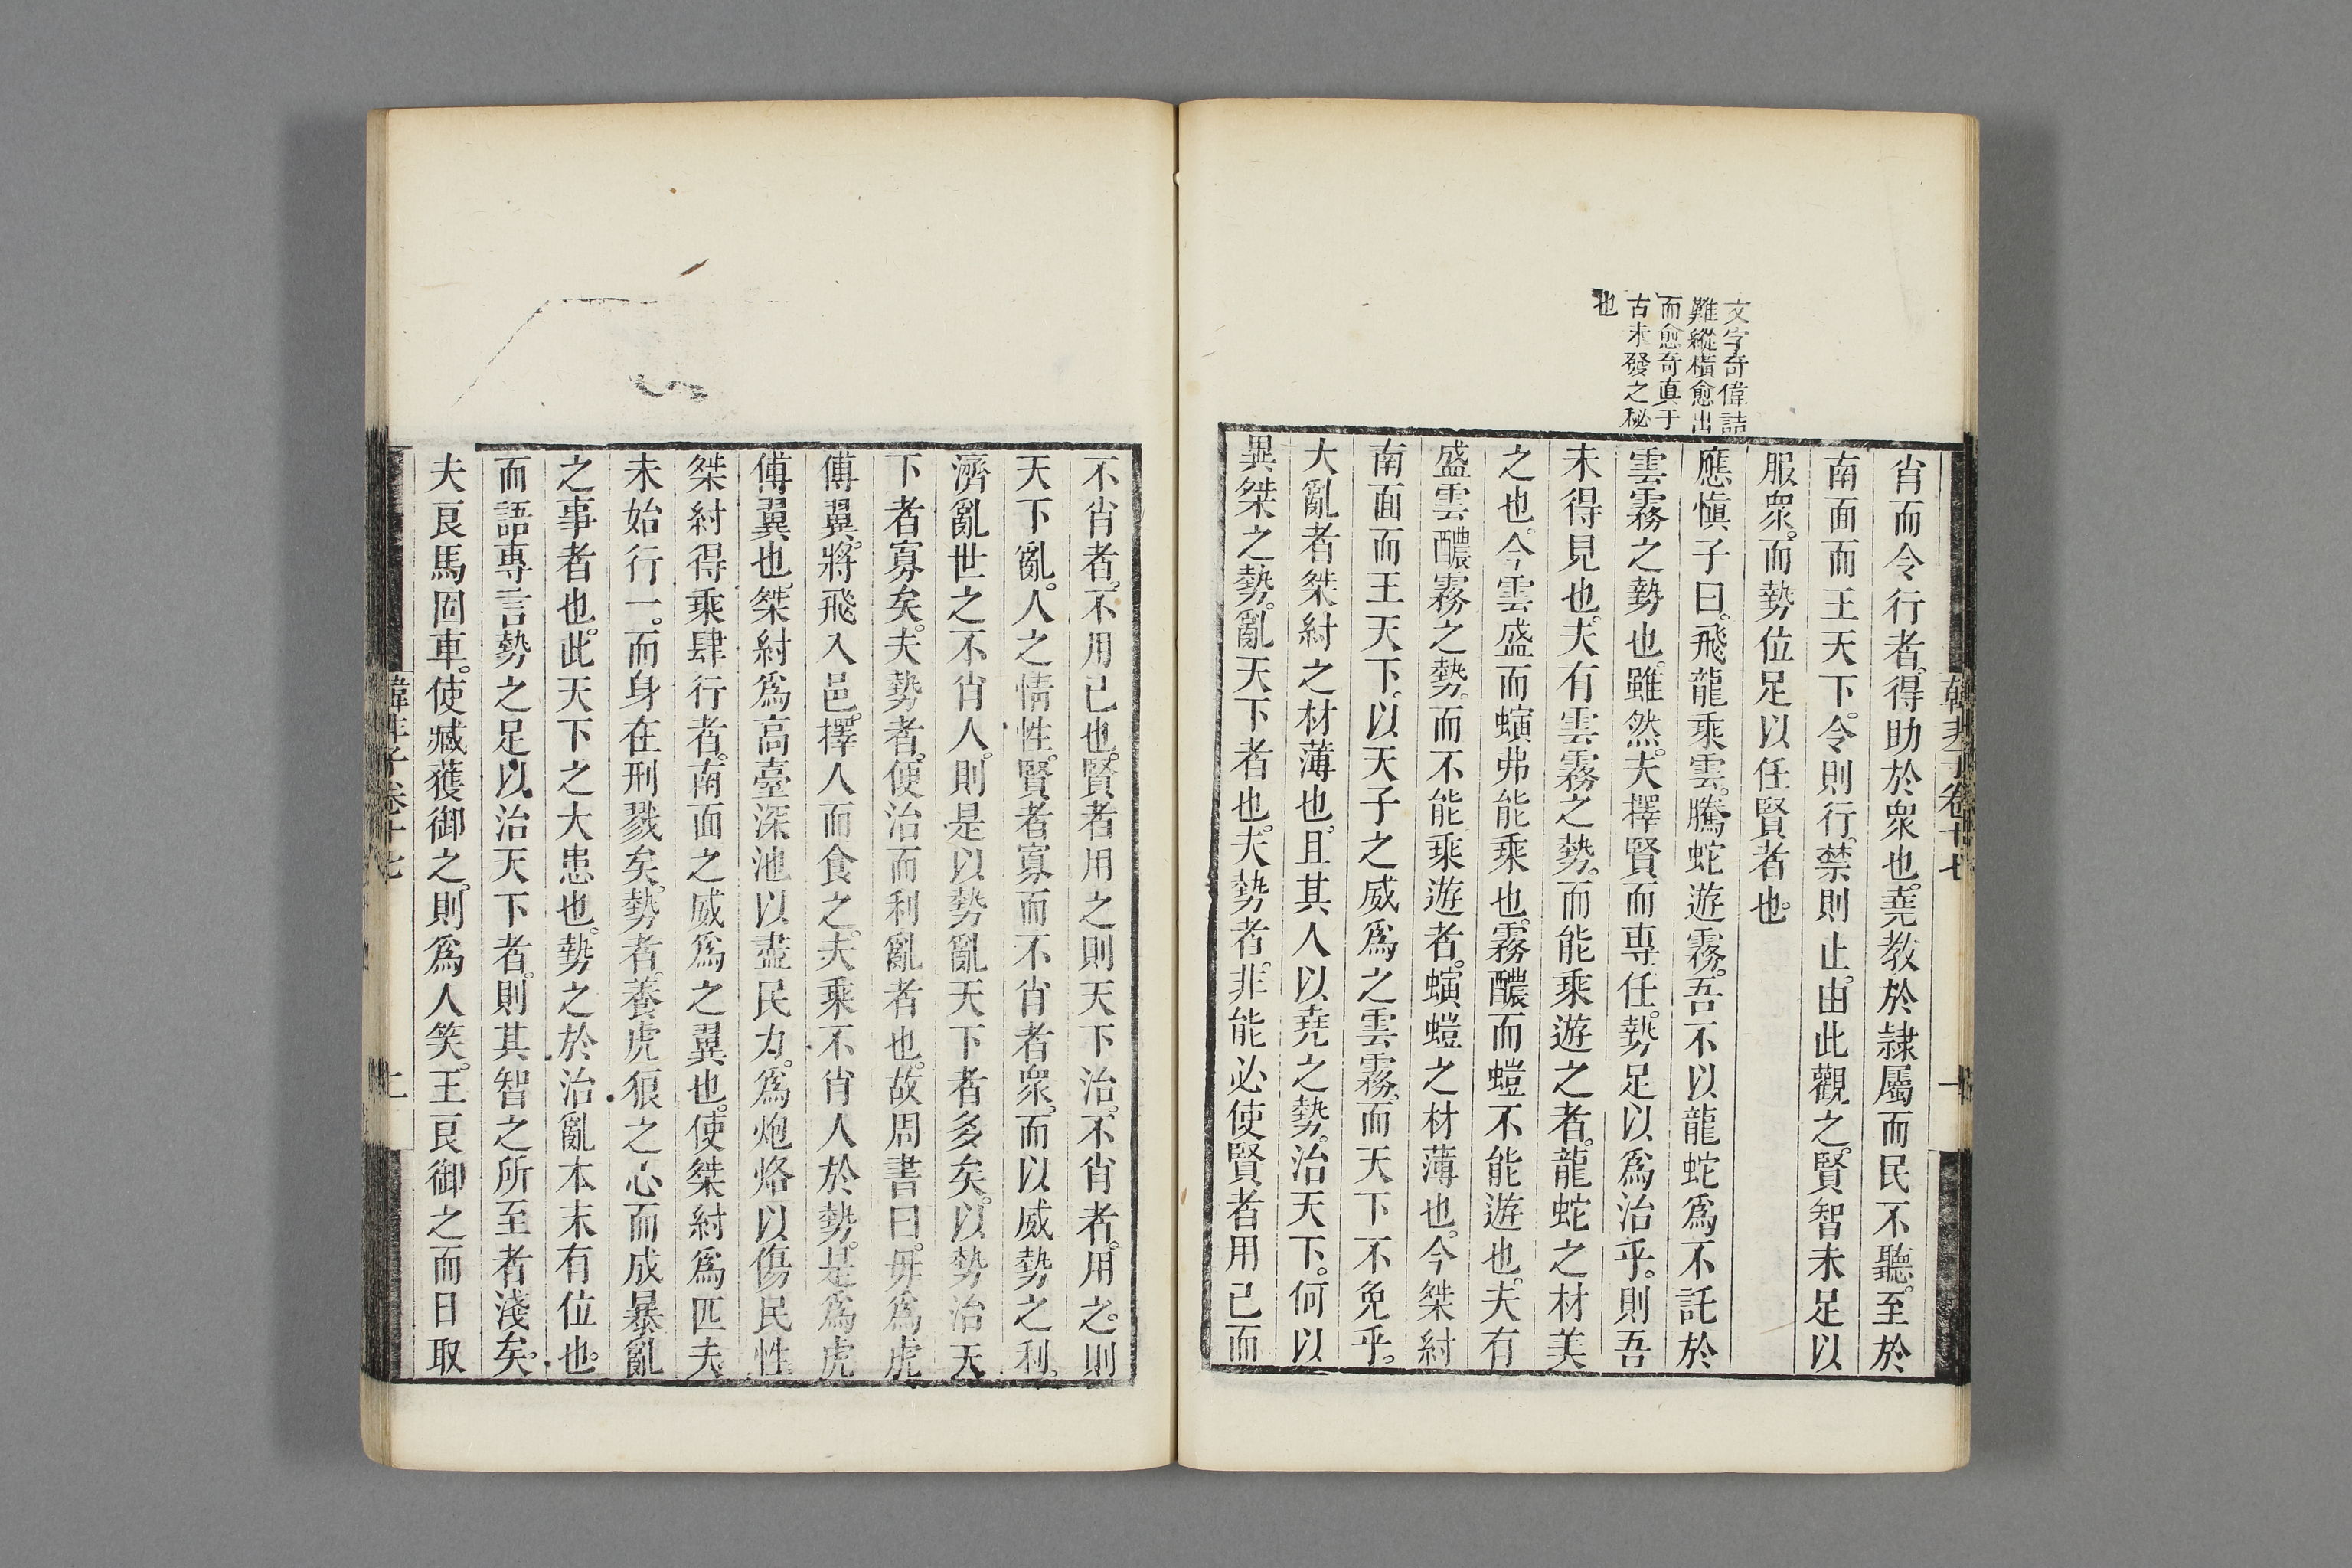 文字奇偉詰
難縱橫愈出
而愈奇真千
古未發之秘
也
韓非子卷十七
一
肖而令行者。得助於衆也。堯教於隷屬而民不聽。至於
南面而王天下。令則行。禁則止。由此觀之。賢智未足以
服衆。而勢位足以任賢者也。
應愼子曰。飛龍乘雲。騰蛇遊霧。吾不以龍蛇爲不託於
雲霧之勢也。雖然。夫擇賢而專任。勢足以爲治乎。則吾
未得見也。夫有雲霧之勢。而能乘遊之者。龍蛇之材美
之也。今雲盛而螾弗能乘也。霧醲而螘不能遊也。夫有
盛雲醲霧之勢。而不能乘遊者。螾螘之材薄也。今桀紂
南面而王天下。以天子之威爲之雲霧。而天下不免乎。
大亂者桀紂之材薄也。且其人以堯之勢。治天下。何以
異桀之勢。亂天下者也。夫勢者。非能必使賢者用己而
不肖者。不用己也。賢者用之則天下治。不肖者。用之。則
天下亂。人之情性。賢者寡而不肖者衆。而以威勢之利。
濟亂世之不肖人。則是以勢亂天下者多矣。以勢治天
下者寡矣。夫勢者。便治而利亂者也。故周書曰。毋爲虎
傅翼。將飛入邑。擇人而食之。夫乘不肖人於勢。是爲虎
傅翼也。桀紂爲高臺深池以盡民力。爲炮烙以傷民性
桀紂得乘肆行者。南面之威爲之翼也。使桀紂爲匹夫。
未始行一。而身在刑戮矣。勢者。養虎狼之心而成暴亂
之事者也。此天下之大患也。勢之於治亂本末有位也。
而語專言勢之足以治天下者。則其智之所至者淺矣。
夫良馬固車。使臧獲御之。則爲人笑。王良御之而日取
韓非子卷十七
二